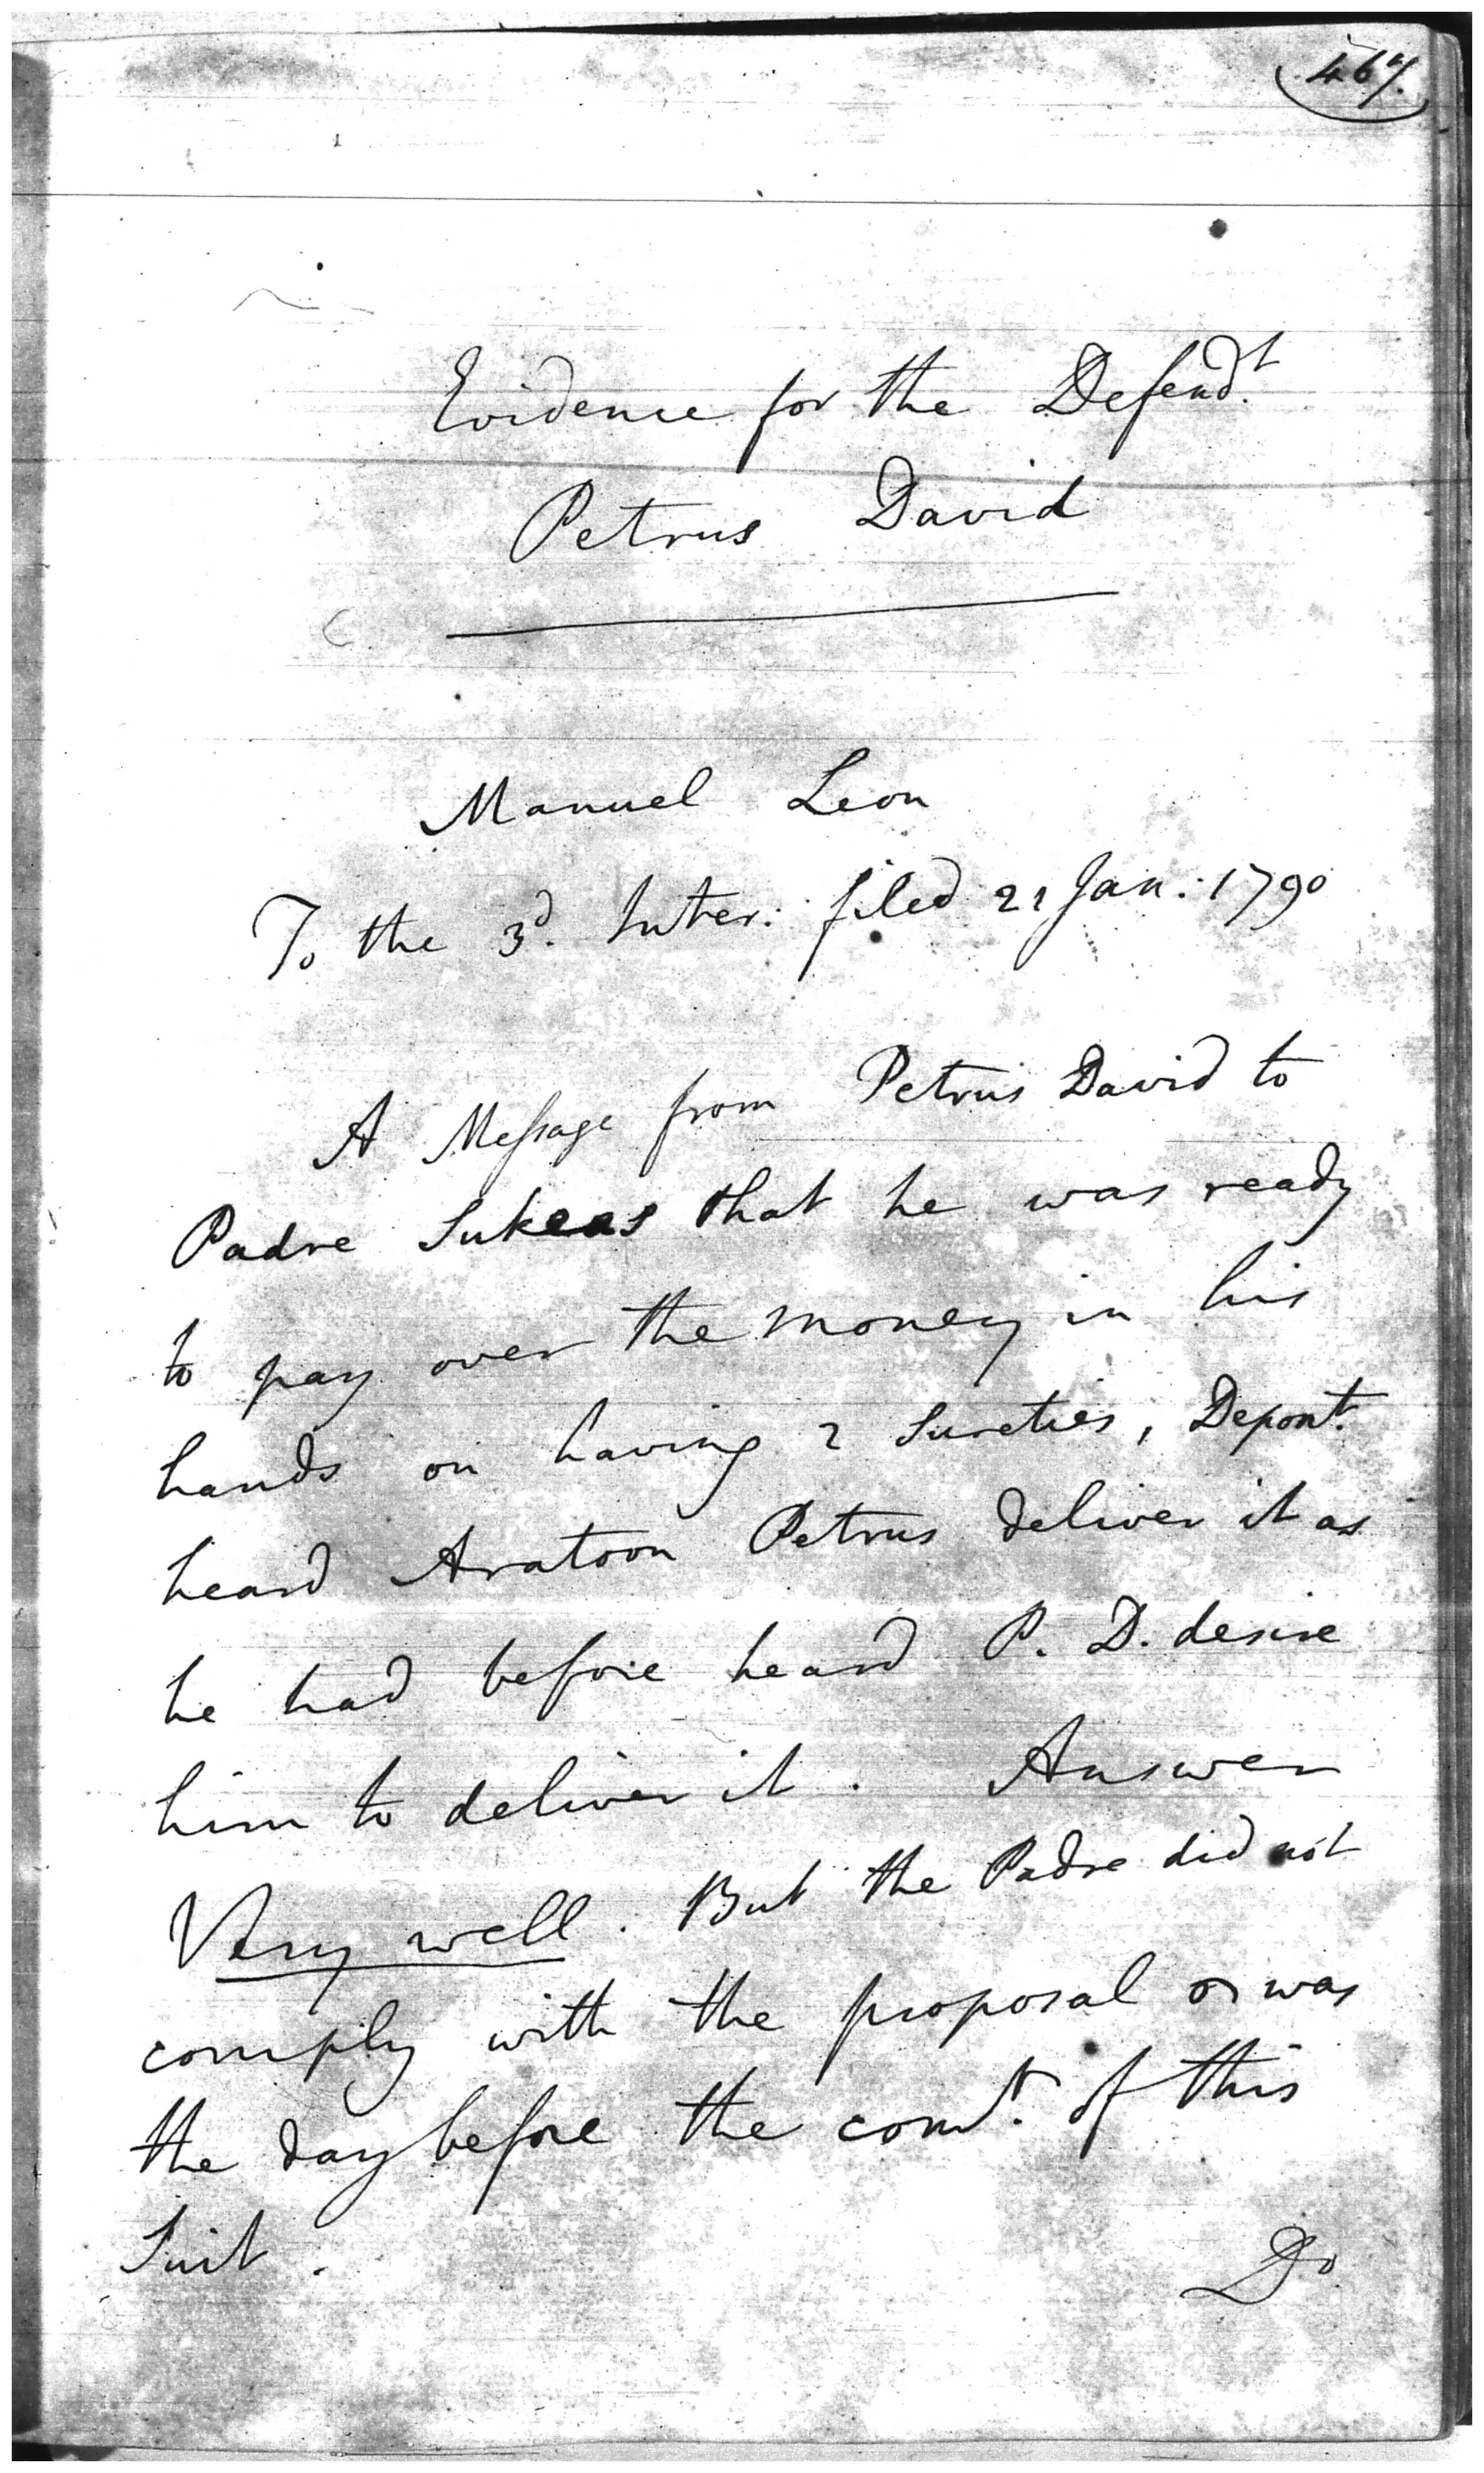 467.
Evidence for the Defend.t
Petrus David
Manuel Leon
To the 3d. Inter: filed 21 Jan: 1790
A Message from Petrus David to
Padre Sukeas that he was ready
to pay over the money in his
hands on having 2 Sureties, Depont.
heard Aratoon Petrus deliver it as
he had before heard P. D. desire
him to deliver it. Answer
Very well. But the Padre did not
comply with the proposal was
the day before the of this
Suit.
Do